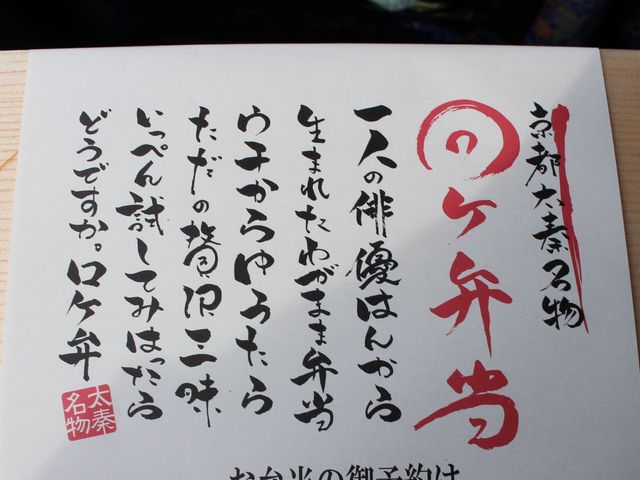 京都太秦名物
ロケ弁当
一人の俳優はんから
生まれたわがまま弁当
ウチからゆうたら
ただの贅沢三昧
いっぺん試してみはったら
どうですか。ロケ弁
太秦
名物
お弁当の御予約は